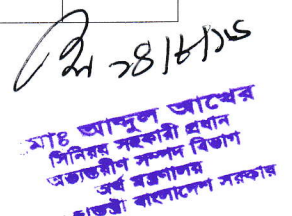 ২৪/৮/১৬
মাঃ আব্দুল আখের
সিনিয়র সহকারী প্রধান
অভ্যন্তরীণ সম্পদ বিভাগ
অর্থ মন্ত্রণালয়
বাংলাদেশ সরকার